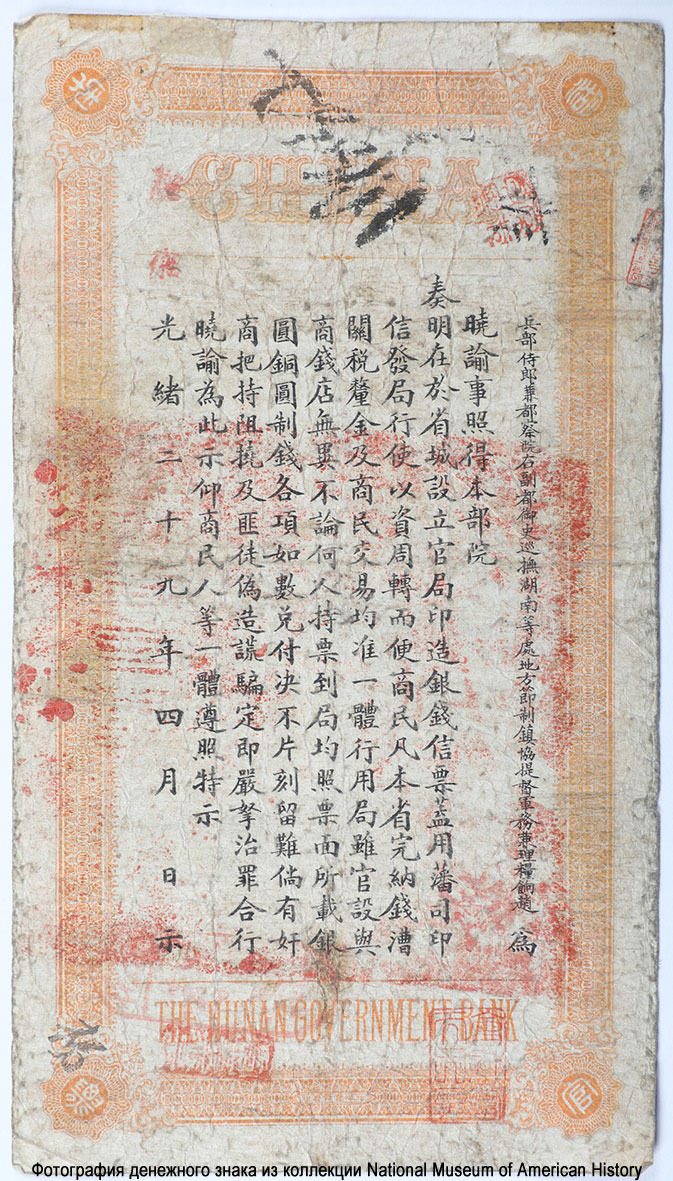 CHINA
兵部侍郎兼都察院右副都御史巡撫湖南等處地方節制鎮協提督軍務兼理糧餉趙 為
曉諭事照得本部院
奏明在於省城設立官局印造銀錢信票蓋用藩司印
信發局行使以資周轉而便商民凡本省完納錢漕
關稅釐金及商民交易均准一體行用局雖官設與
商錢店無異不論何人持票到局均照票面所載銀
圓銅圓制錢各項如數兌付决不片刻留難倘有奸
商把持阻撓及匪徒偽造謊騙定即嚴拏治罪合行
曉諭為此示仰商民人等一體遵照特示
光緒二十九年四月 日示
THE HUNAN GOVERNMENT BANK
Фотография денежного знака из коллекции National Museum of American History